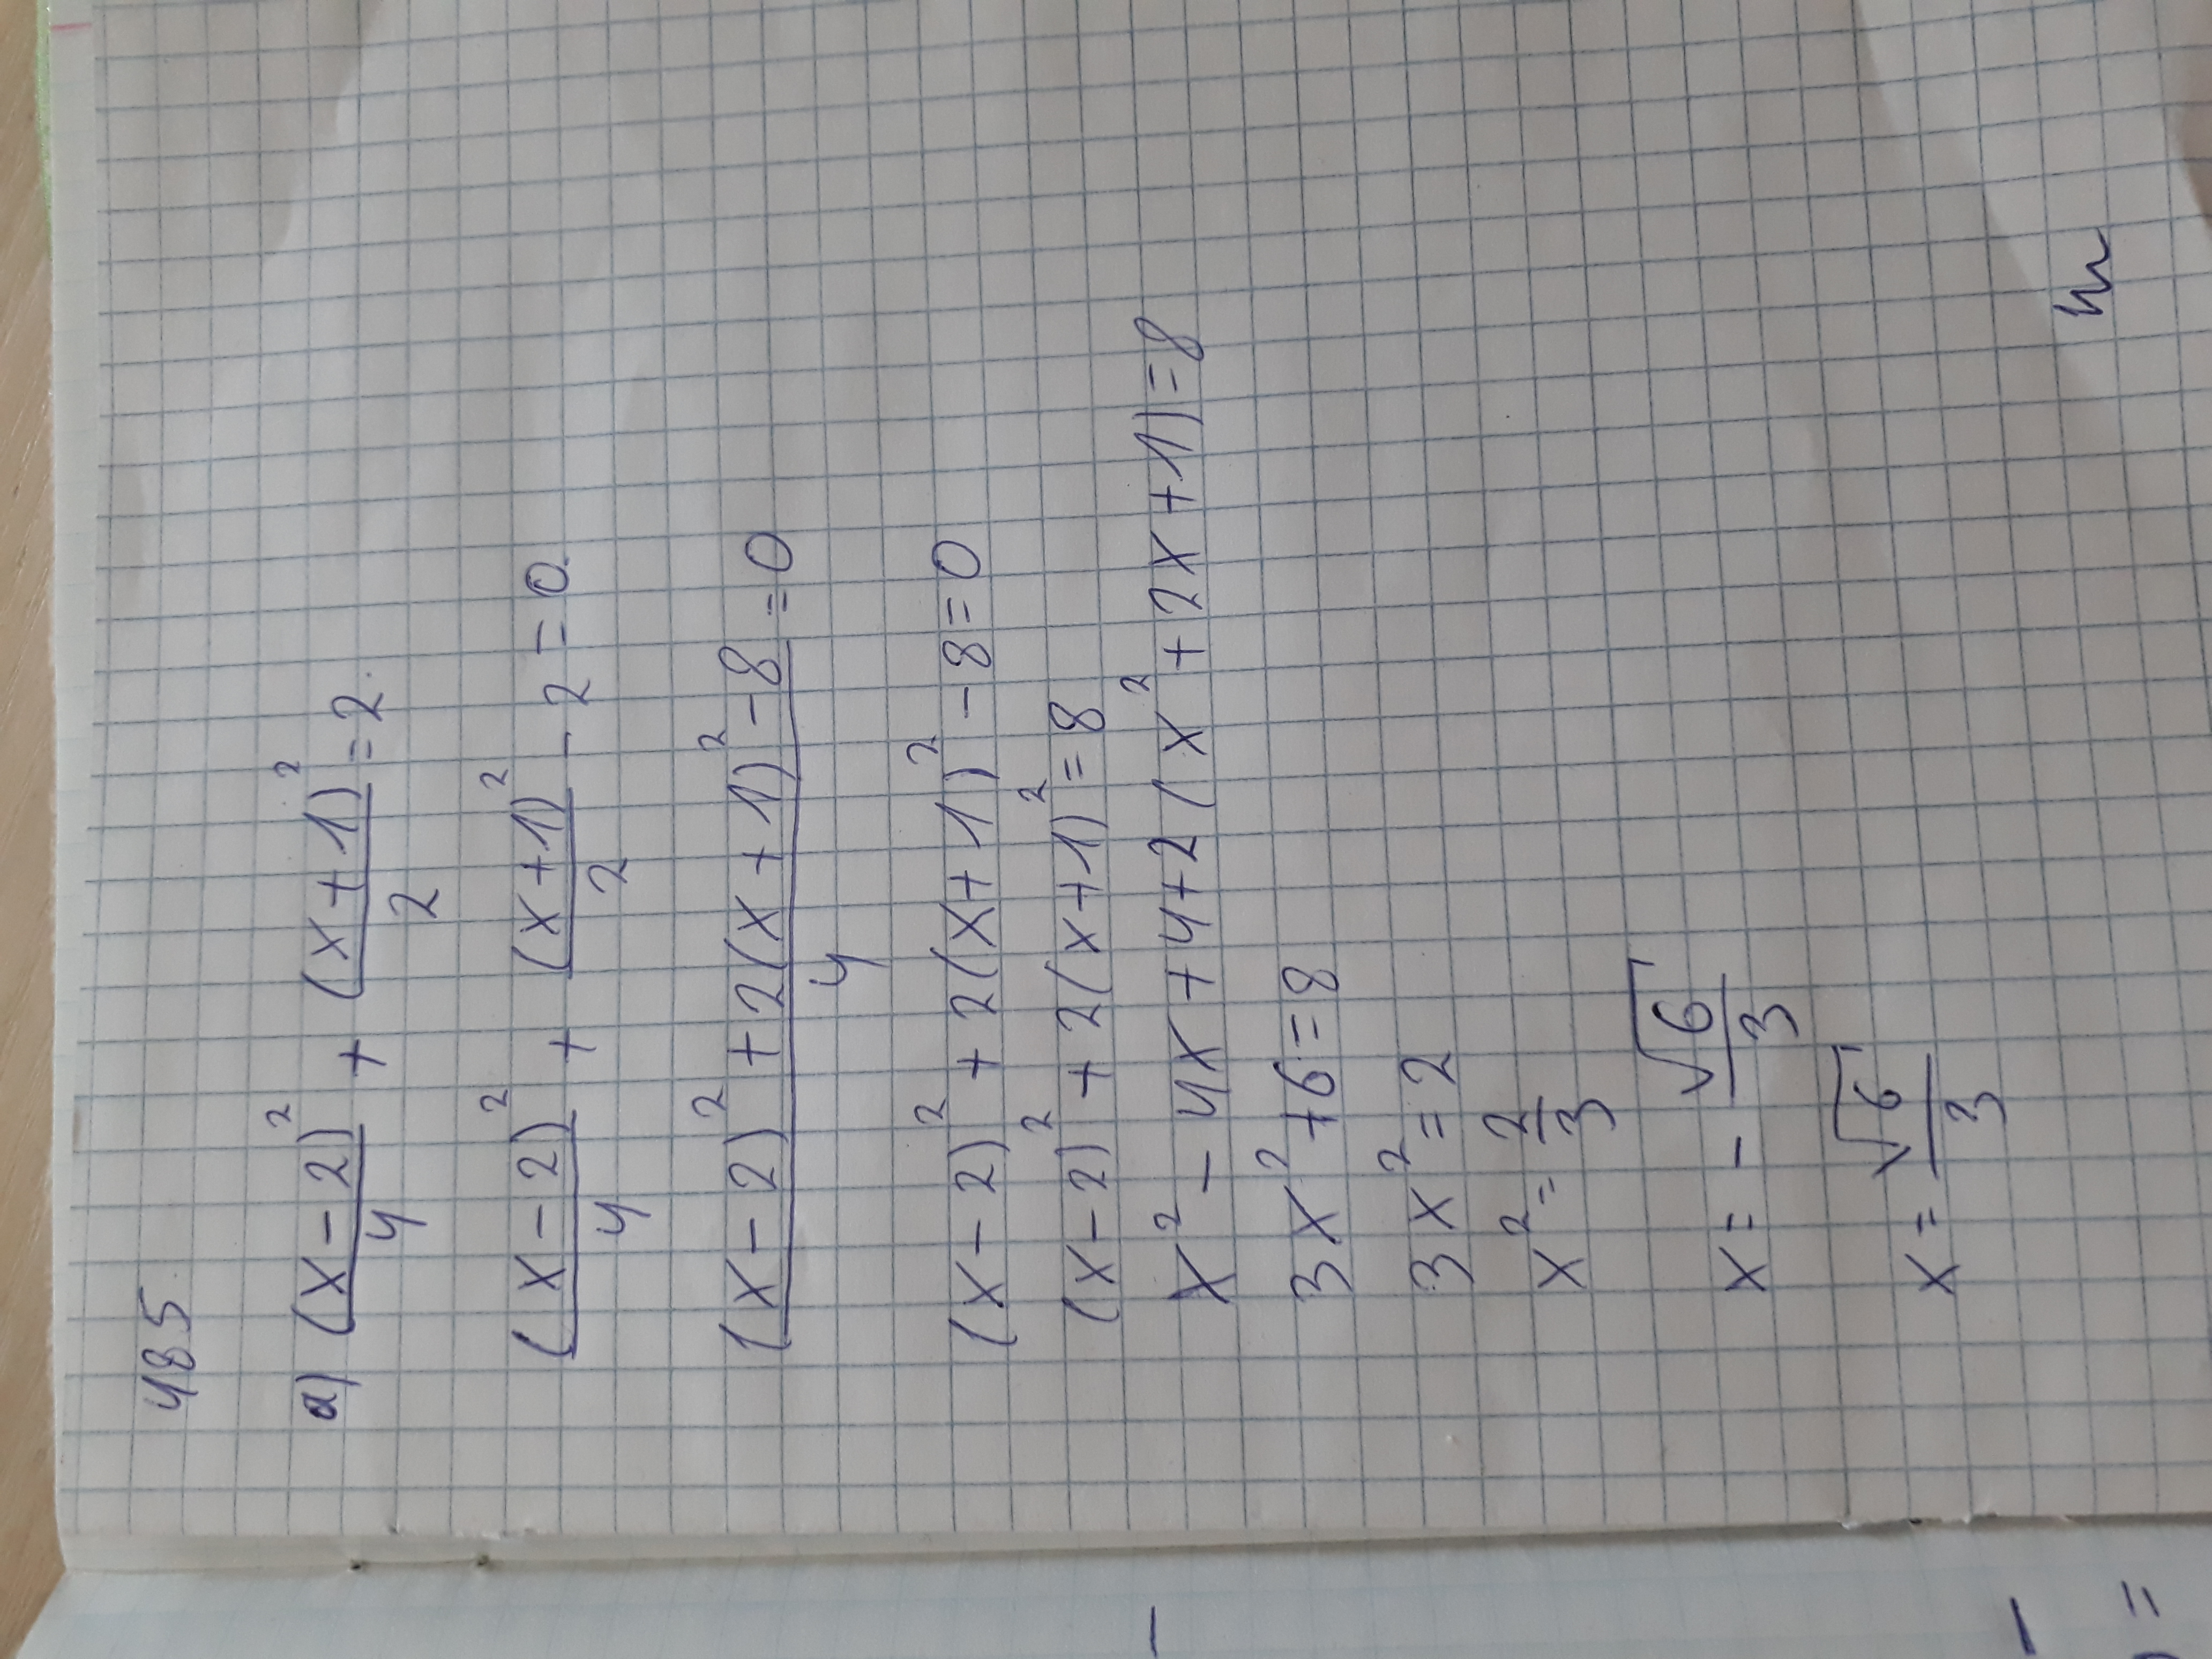 485
a) (x-2)²/4 + (x+1)²/2 = 2.
(x-2)²/4 + (x+1)²/2 - 2 = 0.
(x-2)² + 2(x+1)² - 8/4 = 0
(x-2)² + 2(x+1)² - 8 = 0
(x-2)² + 2(x+1)² = 8
x² - 4x + 4 + 2(x² + 2x + 1) = 8
3x² + 6 = 8
3x² = 2
x² = 2/3
x = - √6/3
x = √6/3